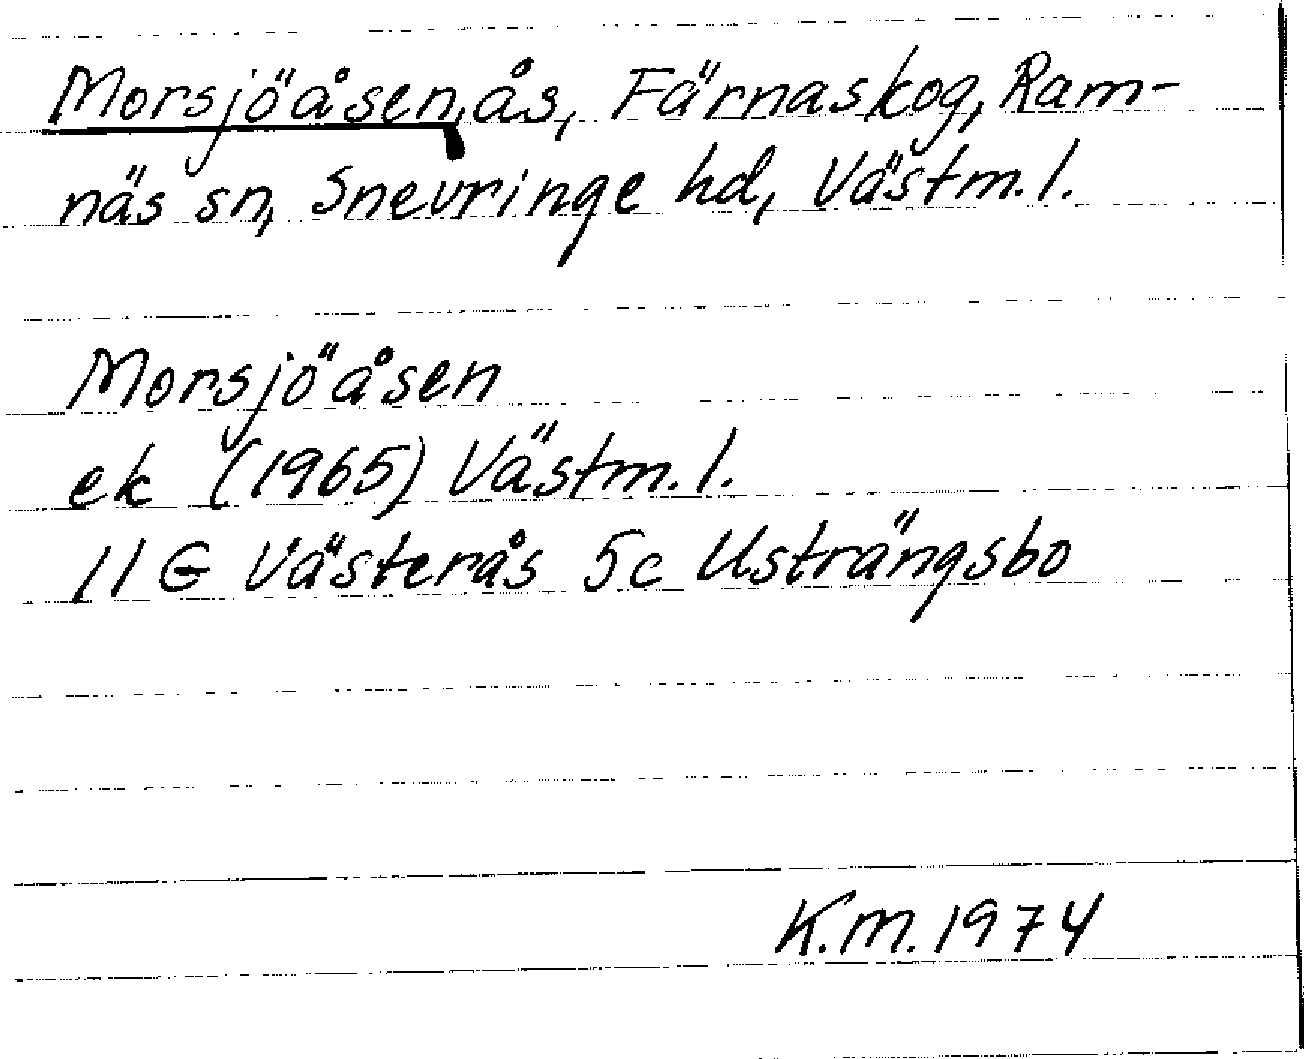 Morsjöåsen, ås, Färnaskog, Ram-
näs sn, Snevringe hd, Västm. l.
Morsjöåsen
ek (1965) Västm. l.
11 G Västerås 5c Usträngsbo
K.M. 1974